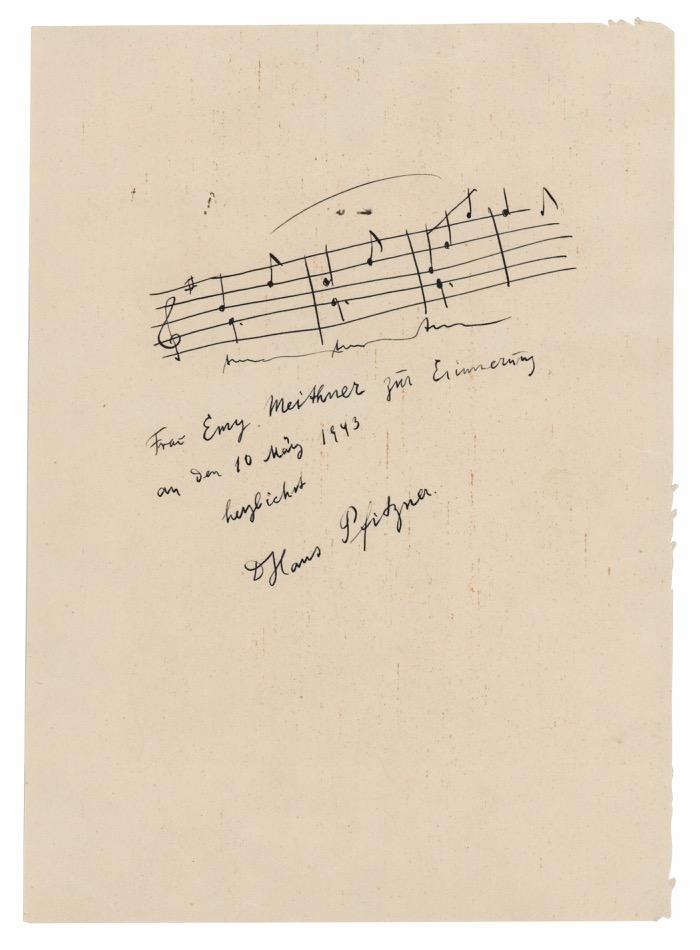 Frau Emy Meithner zur Erinnerung
an den 10 März 1943
herzlichst
DHans Pfitzner.